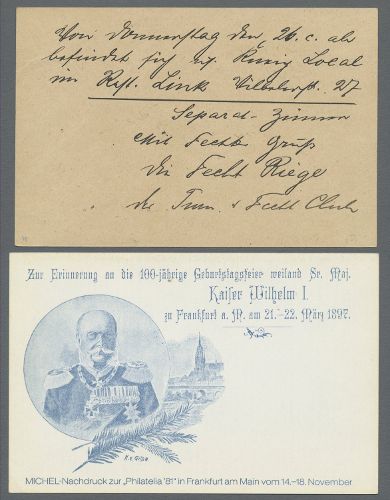 Von Donnerstag den 26. c. ab
befindet sich uns. Local
im Rest. Link Vilbelerstr. 27
Separat-Zimmer
Mit Fecht Gruß
Die Fecht Riege
des Turn & Fecht Clubs
Zur Erinnerung an die 100-jährige Geburtstagsfeier weiland Sr. Maj.
Kaiser Wilhelm I.
zu Frankfurt a. M. am 21.-22. März 1897.
MICHEL-Nachdruck zur „Philatelia '81“ in Frankfurt am Main vom 14.–18. November